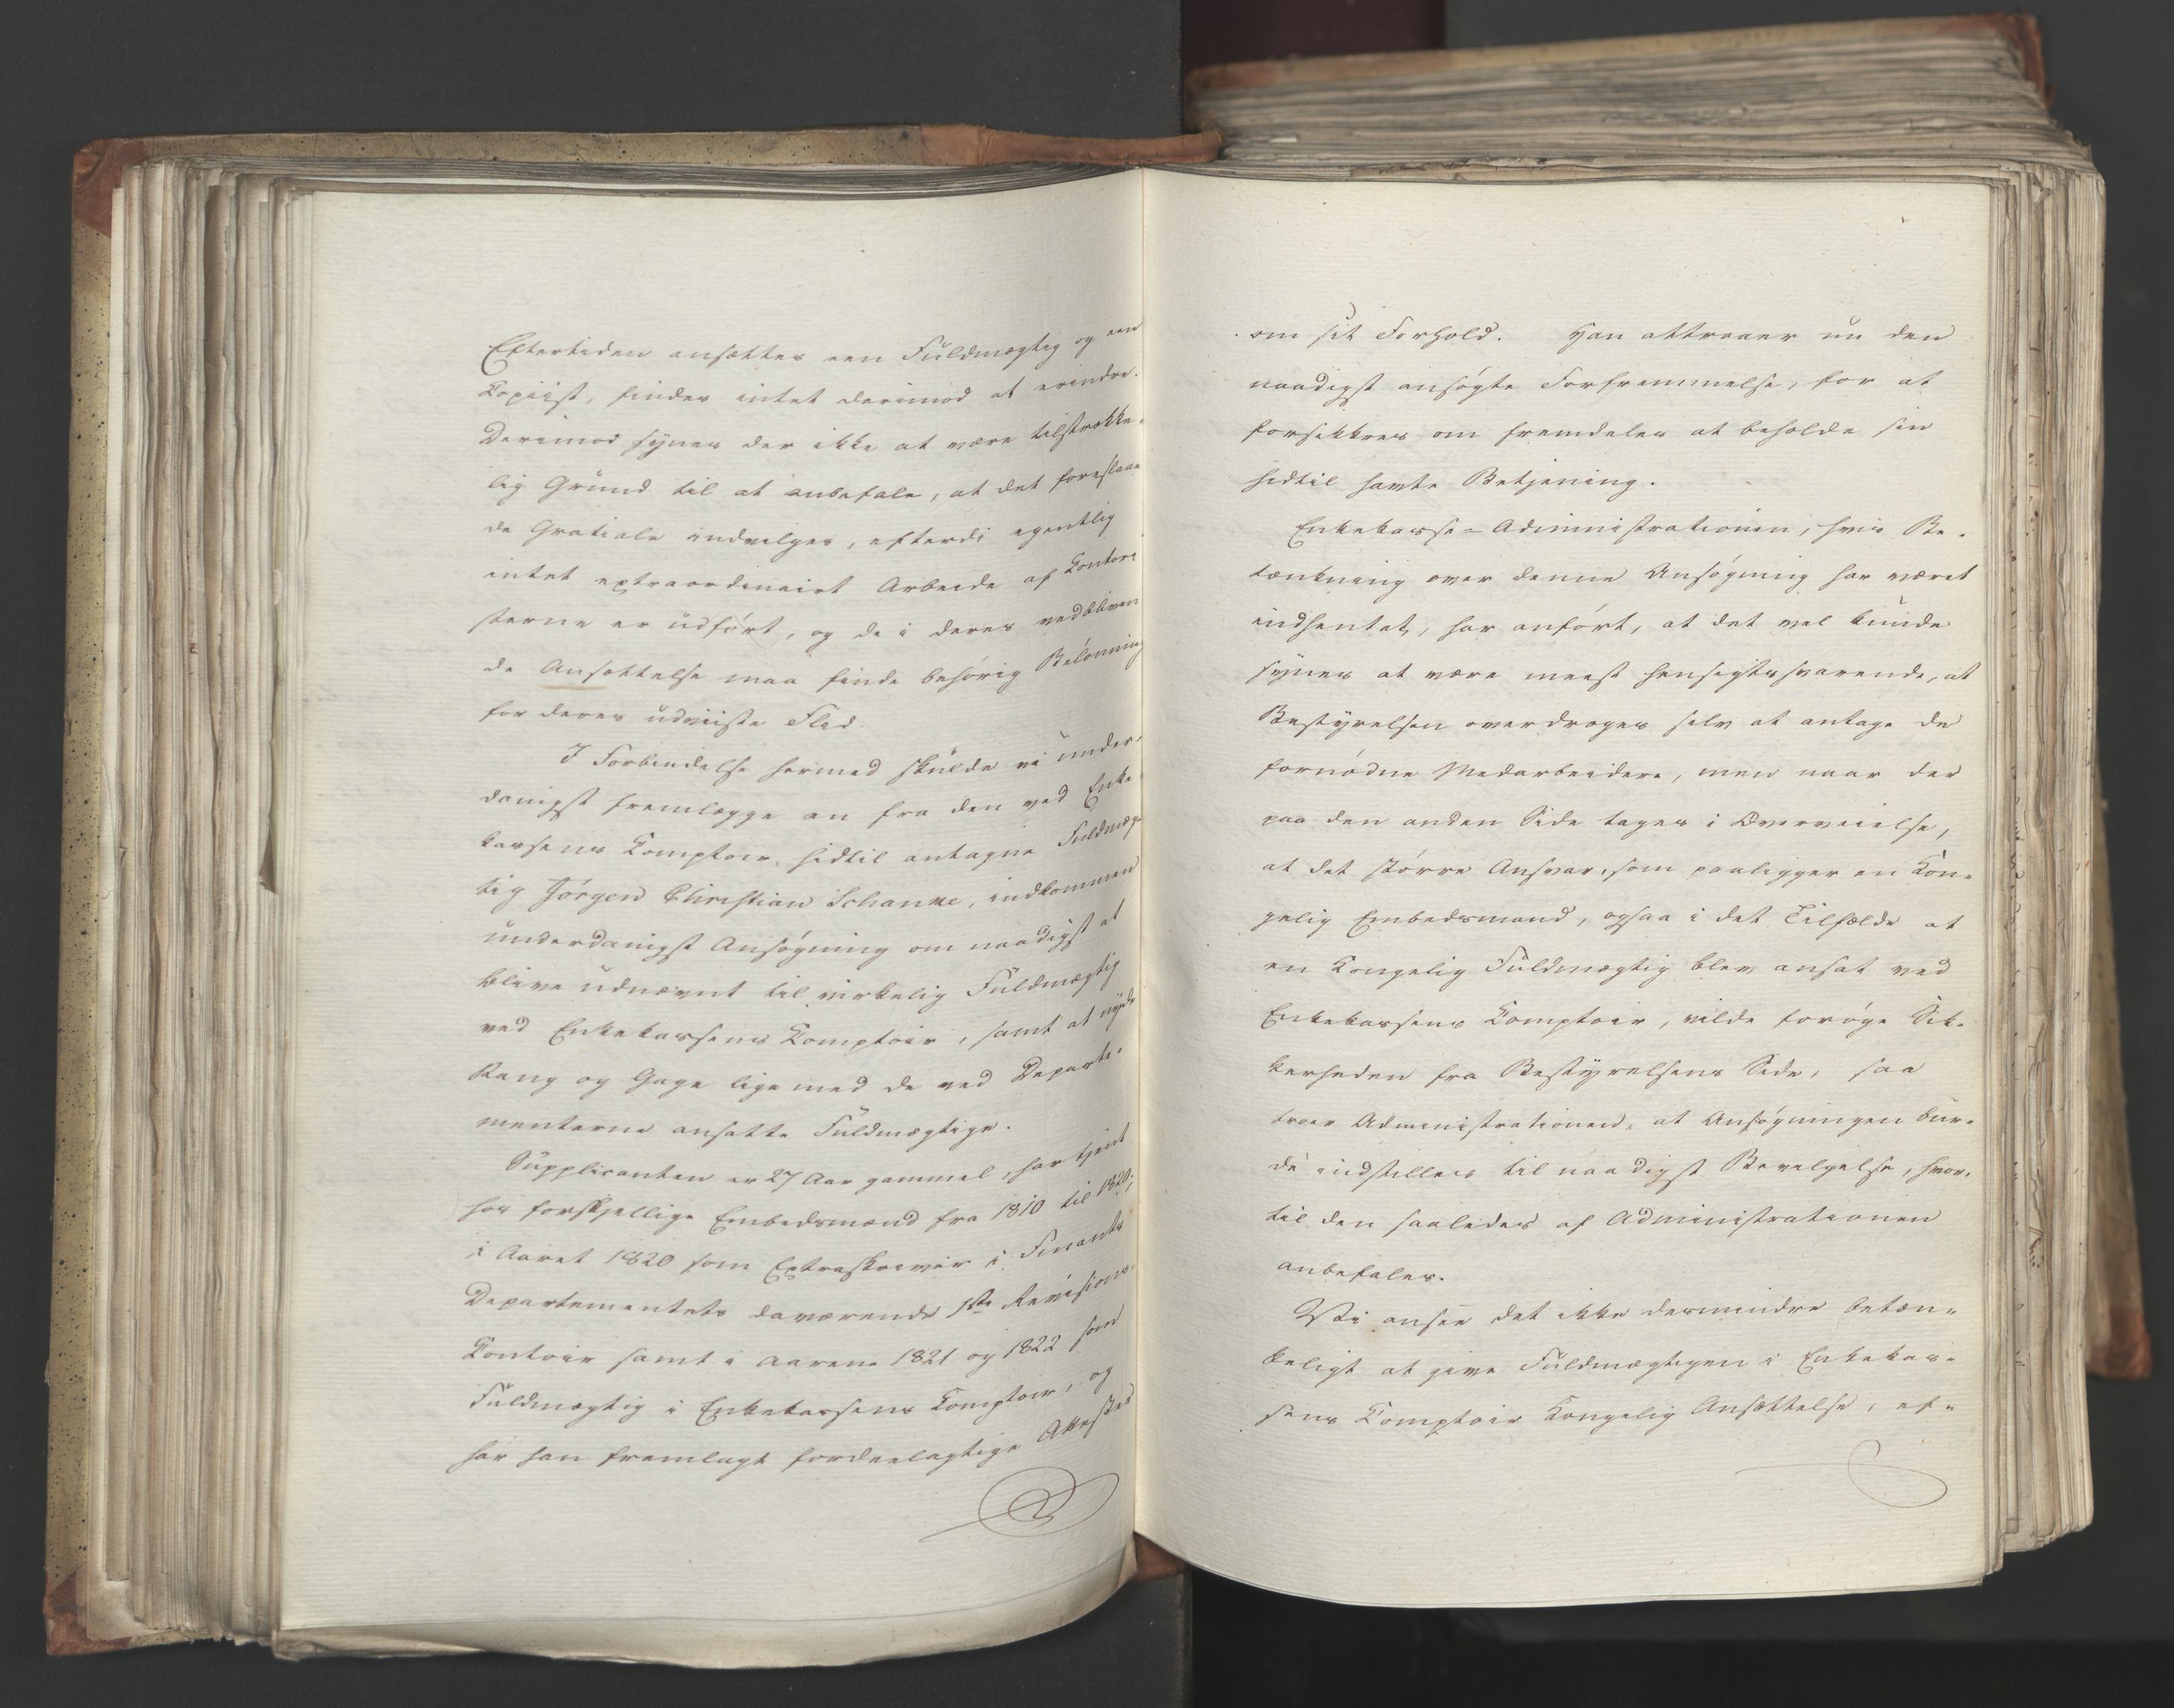 Eftertiden ansættes een Fuldmægtig og een
Copiist, findes intet derimod at erindre.
Derimod synes der ikke at være tilstrække-
lig Grund til at anbefale, at det foreslaae
de Gratiale indvilges, efterdi egentlig
intet extraordinairt Arbeide af Contori
sterne er udført, og de i deres vedbliven
de Ansættelse maa finde behørig Belønning
for deres udviiste Flid.
I Forbindelse hermed skulde vi under-
danigst fremlægge en fra den ved Enke
kassens Comptoir, hidtil antagne Fuldmæg-
tig Jørgen Christian Schanke, indkommen
underdanigst Ansøgning om naadigst at
blive udnævnt til virkelig Fuldmægtig
ved Enkekassens Comptoir, samt at nyde
Rang og Gage lige med de ved Departe-
menterne ansatte Fuldmægtige.
Supplicanten er 27 Aar gammel, har tjent
hos forskjellige Embedsmænd fra 1810 til 1820;
i Aaret 1820 som Extraskriver i Finants
Departementets daværende 1ste Revisions-
Contoir samt i Aarene 1821 og 1822 som
Fuldmægtig i Enkekassens Comptoir, og
har han fremlagt fordeelagtige Attester
om sit Forhold. Han attraaer nu den
naadigst ansøgte Forfremmelse, for at
forsikkres om fremdeles at beholde sin
hidtil havte Betjening.
Enkekasse-Administrationen, hvis Be-
tænkning over denne Ansøgning har været
indhentet, har anført, at det vel kunde
synes at være meest hensigtssvarende, at
Bestyrelsen overdroges selv at antage de
fornødne Medarbeidere, men naar der
paa den anden Side tages i Overveielse,
at det større Ansvar, som paaligger en Kon-
gelig Embedsmand, ogsaa i det Tilfælde at
en Kongelig Fuldmægtig blev ansat ved
Enkekassens Comptoir, vilde forøge Sik-
kerheden fra Bestyrelsens Side, saa
troer Administrationen, at Ansøgningen bur-
de indstilles til naadigst Bevilgelse, hvor-
til den saaledes af Administrationen
anbefales.
Vi ansee det ikke desmindre betæn-
keligt at give Fuldmægtigen i Enkekas-
sens Comptoir Kongelig Ansættelse, ef-